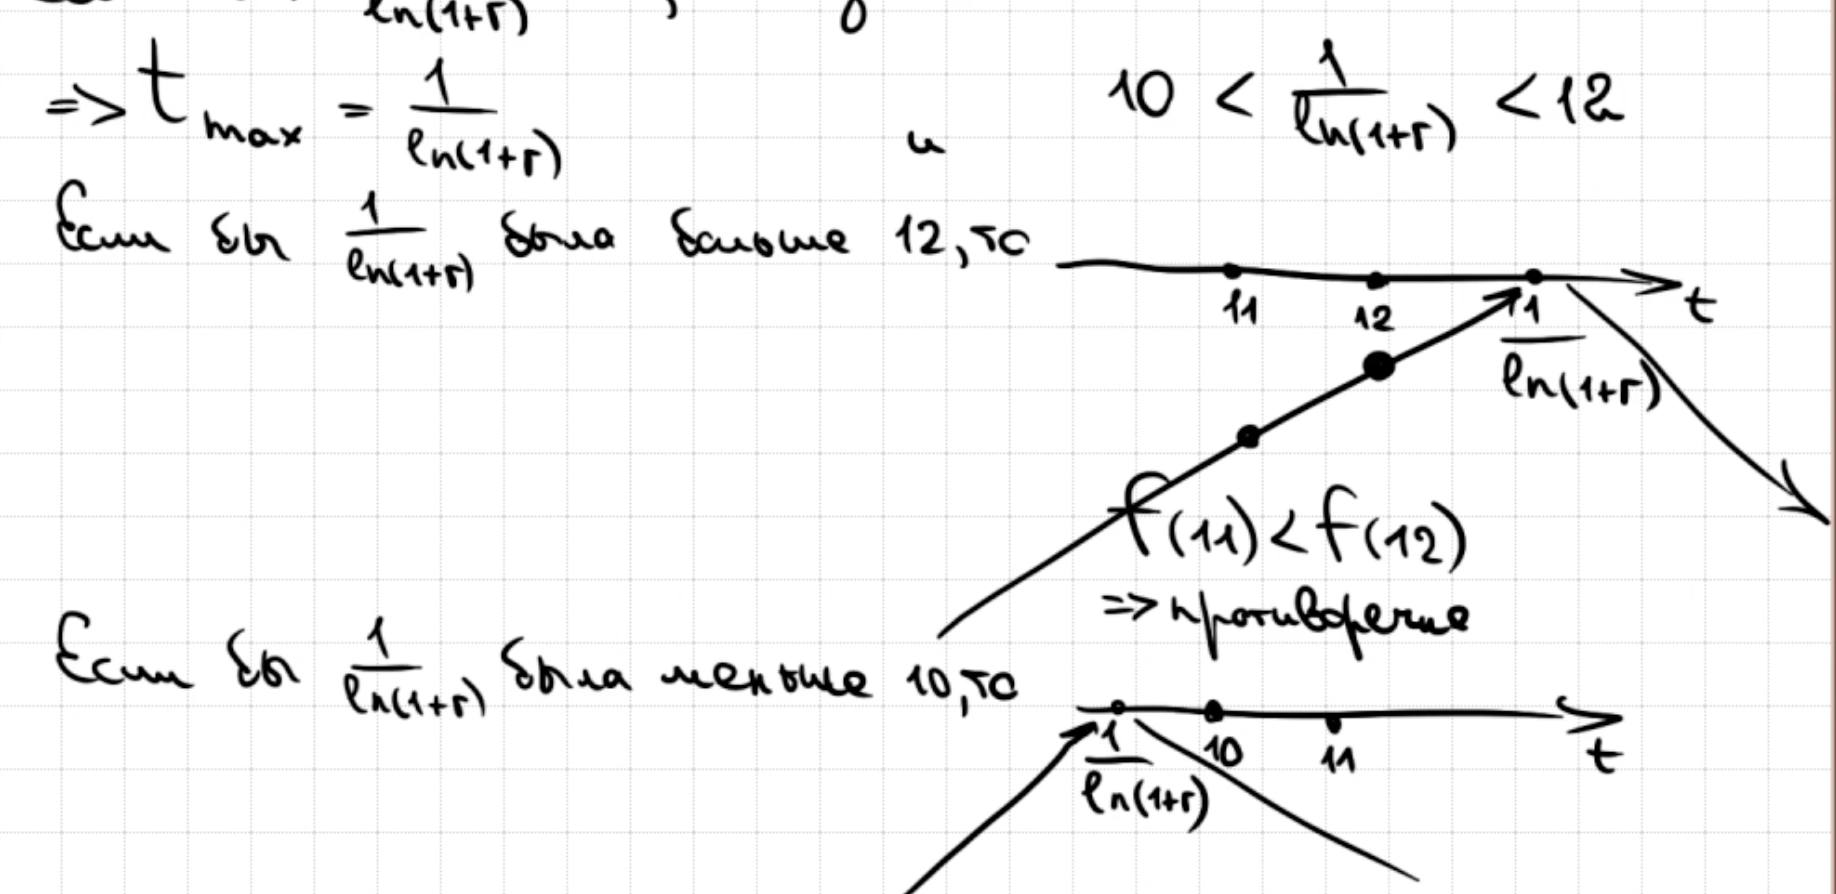 ln(1+r) , 0
=> t max = 1/ln(1+r) и 10 < 1/ln(1+r) < 12
Если бы 1/ln(1+r) была больше 12, то
11 12 1/ln(1+r) t
f(11) < f(12)
=> противоречие
Если бы 1/ln(1+r) была меньше 10, то
1/ln(1+r) 10 11 t